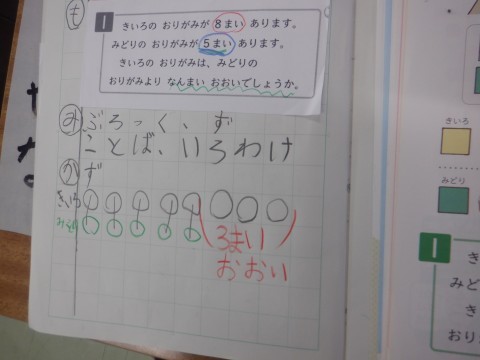 も
1
きいろの おりがみが 8まい あります。
みどりの おりがみが 5まい あります。
きいろの おりがみは、みどりの
おりがみより なんまい おおいでしょうか。
み ぶろっく、ず
ことば、いろわけ
か ず
きいろ
みどり
3まい
おおい
きいろ
みどり
1
き
みど
き
おり